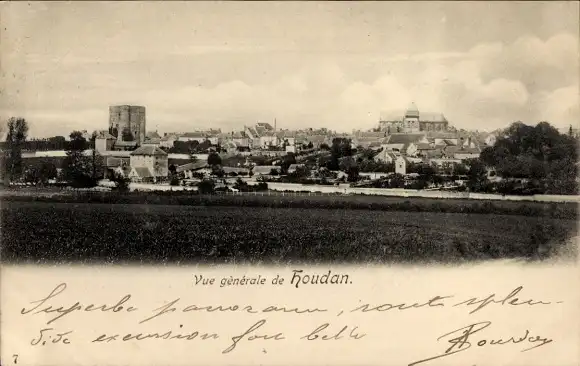 Vue générale de Houdan.
Superbe panorama, route splen-
dide excursion fou belle
7